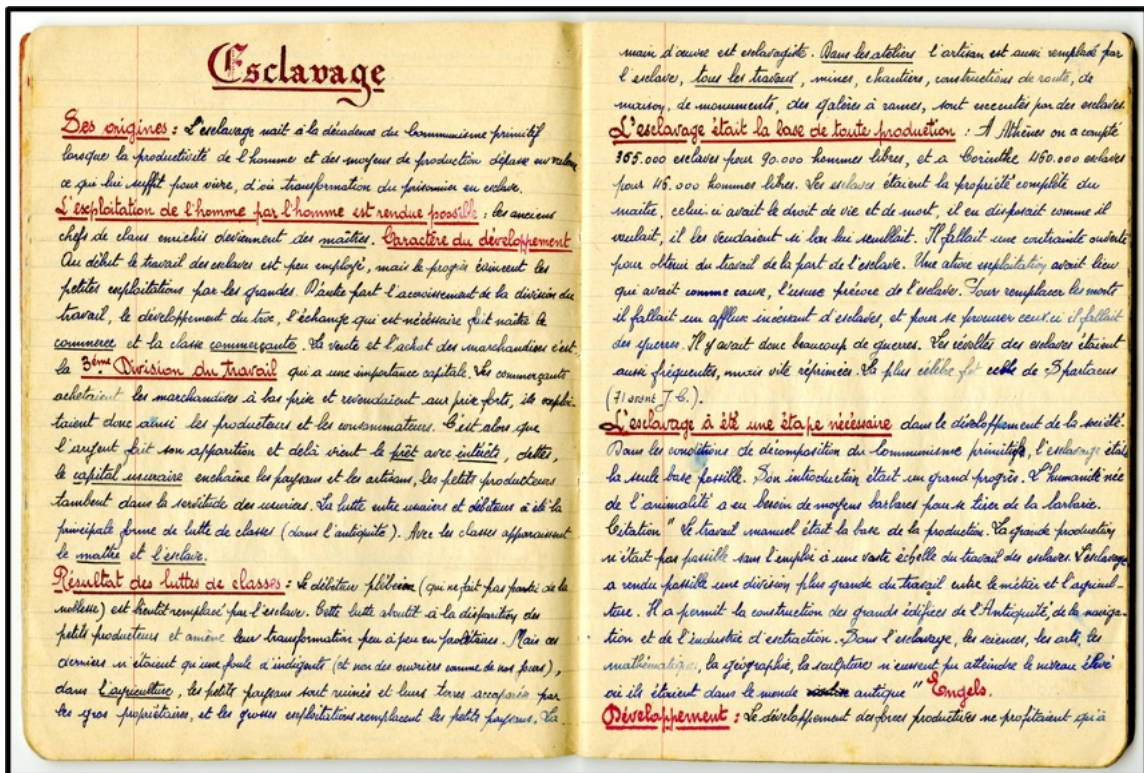 Esclavage
Ses origines : L'esclavage nait à la décadence du Communisme primitif
lorsque la productivité de l'homme et des moyens de production dépasse en valeur
ce qui lui suffit pour vivre, d'où transformation du prisonnier en esclave.
L'exploitation de l'homme par l'homme est rendue possible : les anciens
chefs de clans enrichis deviennent des maîtres. Caractère du développement
Au début le travail des esclaves est peu employé, mais le progrès évincent les
petites exploitations par les grandes. D'autre part l'accroissement de la division du
travail, le développement du troc, l'échange qui est nécessaire fait naître le
commerce et la classe commerçante. La vente et l'achat des marchandises c'est
la 3ème Division du travail qui a une importance capitale. Les commerçants
achetaient les marchandises à bas prix et revendaient aux prix forts, ils exploi-
taient donc ainsi les producteurs et les consommateurs. C'est alors que
l'argent fait son apparition et delà vient le prêt avec intérêts, dettes,
le capital usuraire enchaîne les paysans et les artisans, les petits producteurs
tombent dans la servitude des usuriers. La lutte entre usuriers et débiteurs à été la
principale forme de lutte de classes (dans l'antiquité). Avec les classes apparaissent
le maître et l'esclave.
Résultat des luttes de classes : Le débiteur plébéien (qui ne fait pas partie de la
noblesse) est bientôt remplacé par l'esclave. Cette lutte aboutit à la disparition des
petits producteurs et amène leur transformation peu à peu en prolétaires. Mais ces
derniers n'étaient qu'une foule d'indigents (et non des ouvriers comme de nos jours),
dans l'agriculture, les petits paysans sont ruinés et leurs terres accaparées par
les gros propriétaires, et les grosses exploitations remplacent les petits paysans. La
main d'œuvre est esclavagiste. Dans les ateliers l'artisan est aussi remplacé par
l'esclave, tous les travaux, mines, chantiers, constructions de route, de
maison, de monuments, des galères à rames, sont executés par des esclaves.
L'esclavage était la base de toute production : A Athènes on a compté
365.000 esclaves pour 90.000 hommes libres, et a Corinthe 460.000 esclaves
pour 46.000 hommes libres. Les esclaves étaient la propriété complète du
maître, celui-ci avait le droit de vie et de mort, il en disposait comme il
voulait, il les vendaient si bon lui semblait. Il fallait une contrainte ouverte
pour obtenir du travail de la part de l'esclave. Une exploitation avait lieu
qui avait comme cause, l'usure précoce de l'esclave. Pour remplacer les morts
il fallait un afflux incessant d'esclaves, et pour se procurer ceux-ci il fallait
des guerres. Il y avait donc beaucoup de guerres. Les révoltes des esclaves étaient
aussi fréquentes, mais vite réprimées. La plus célèbre fut celle de Spartacus
(71 avant J.C.).
L'esclavage à été une étape nécessaire dans le développement de la société.
Dans les conditions de décomposition du Communisme primitif, l'esclavage était
la seule base possible. Son introduction était un grand progrès. L'humanité née
de l'animalité a eu besoin de moyens barbares pour se tirer de la barbarie.
Citation " Le travail manuel était la base de la production. La grande production
n'était pas possible sans l'emploi à une vaste échelle du travail des esclaves. L'esclavage
a rendu possible une division plus grande du travail entre le métier et l'agricul-
ture. Il a permit la construction des grands édifices de l'Antiquité, de la naviga-
tion et de l'industrie d'extraction. Sans l'esclavage, les sciences, les arts, les
mathématiques, la géographie, la sculpture n'eussent pu atteindre le niveau élevé
où ils étaient dans le monde antique " Engels.
Développement : Le développement des forces productives ne profitaient qu'à